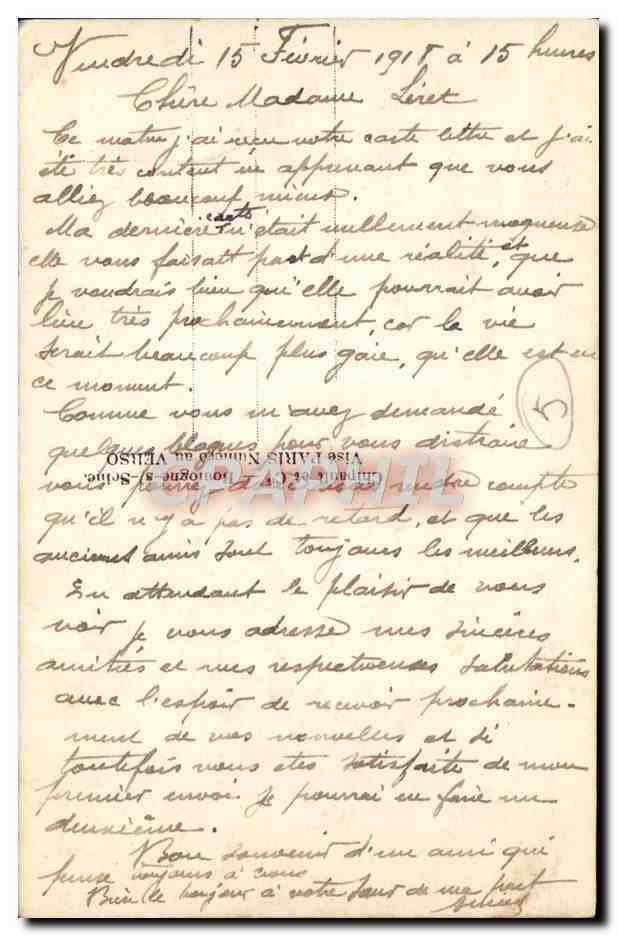 Vendredi 15 Février 1918 à 15 heures
Chère Madame Léret
Ce matin j'ai reçu votre carte lettre et j'ai
été très content en apprenant que vous
alliez beaucoup mieux.
Ma dernière carte n'était nullement moqueuse
elle vous faisait part d'une réalité, et que
je voudrais bien qu'elle pourrait avoir
lieu très prochainement, car la vie
serait beaucoup plus gaie, qu'elle est en
ce moment.
Comme vous m'avez demandé
quelques blagues pour vous distraire
vous pouvez d'ici vous rendre compte
qu'il n'y a pas de retard, et que les
anciens amis sont toujours les meilleurs.
En attendant le plaisir de vous
voir je vous adresse mes sincères
amitiés et mes respectueuses salutations
avec l'espoir de recevoir prochaine-
ment de vos nouvelles et si
toutefois vous etes satisfaite de mon
premier envoi je pourrai en faire un
deuxième.
Bon souvenir d'un ami qui
pense toujours à vous
Bien le bonjour à votre sœur de ma part
5
Boulogne-s/-Seine.
Visé PARIS Numéro au VERSO
CPAPHIL